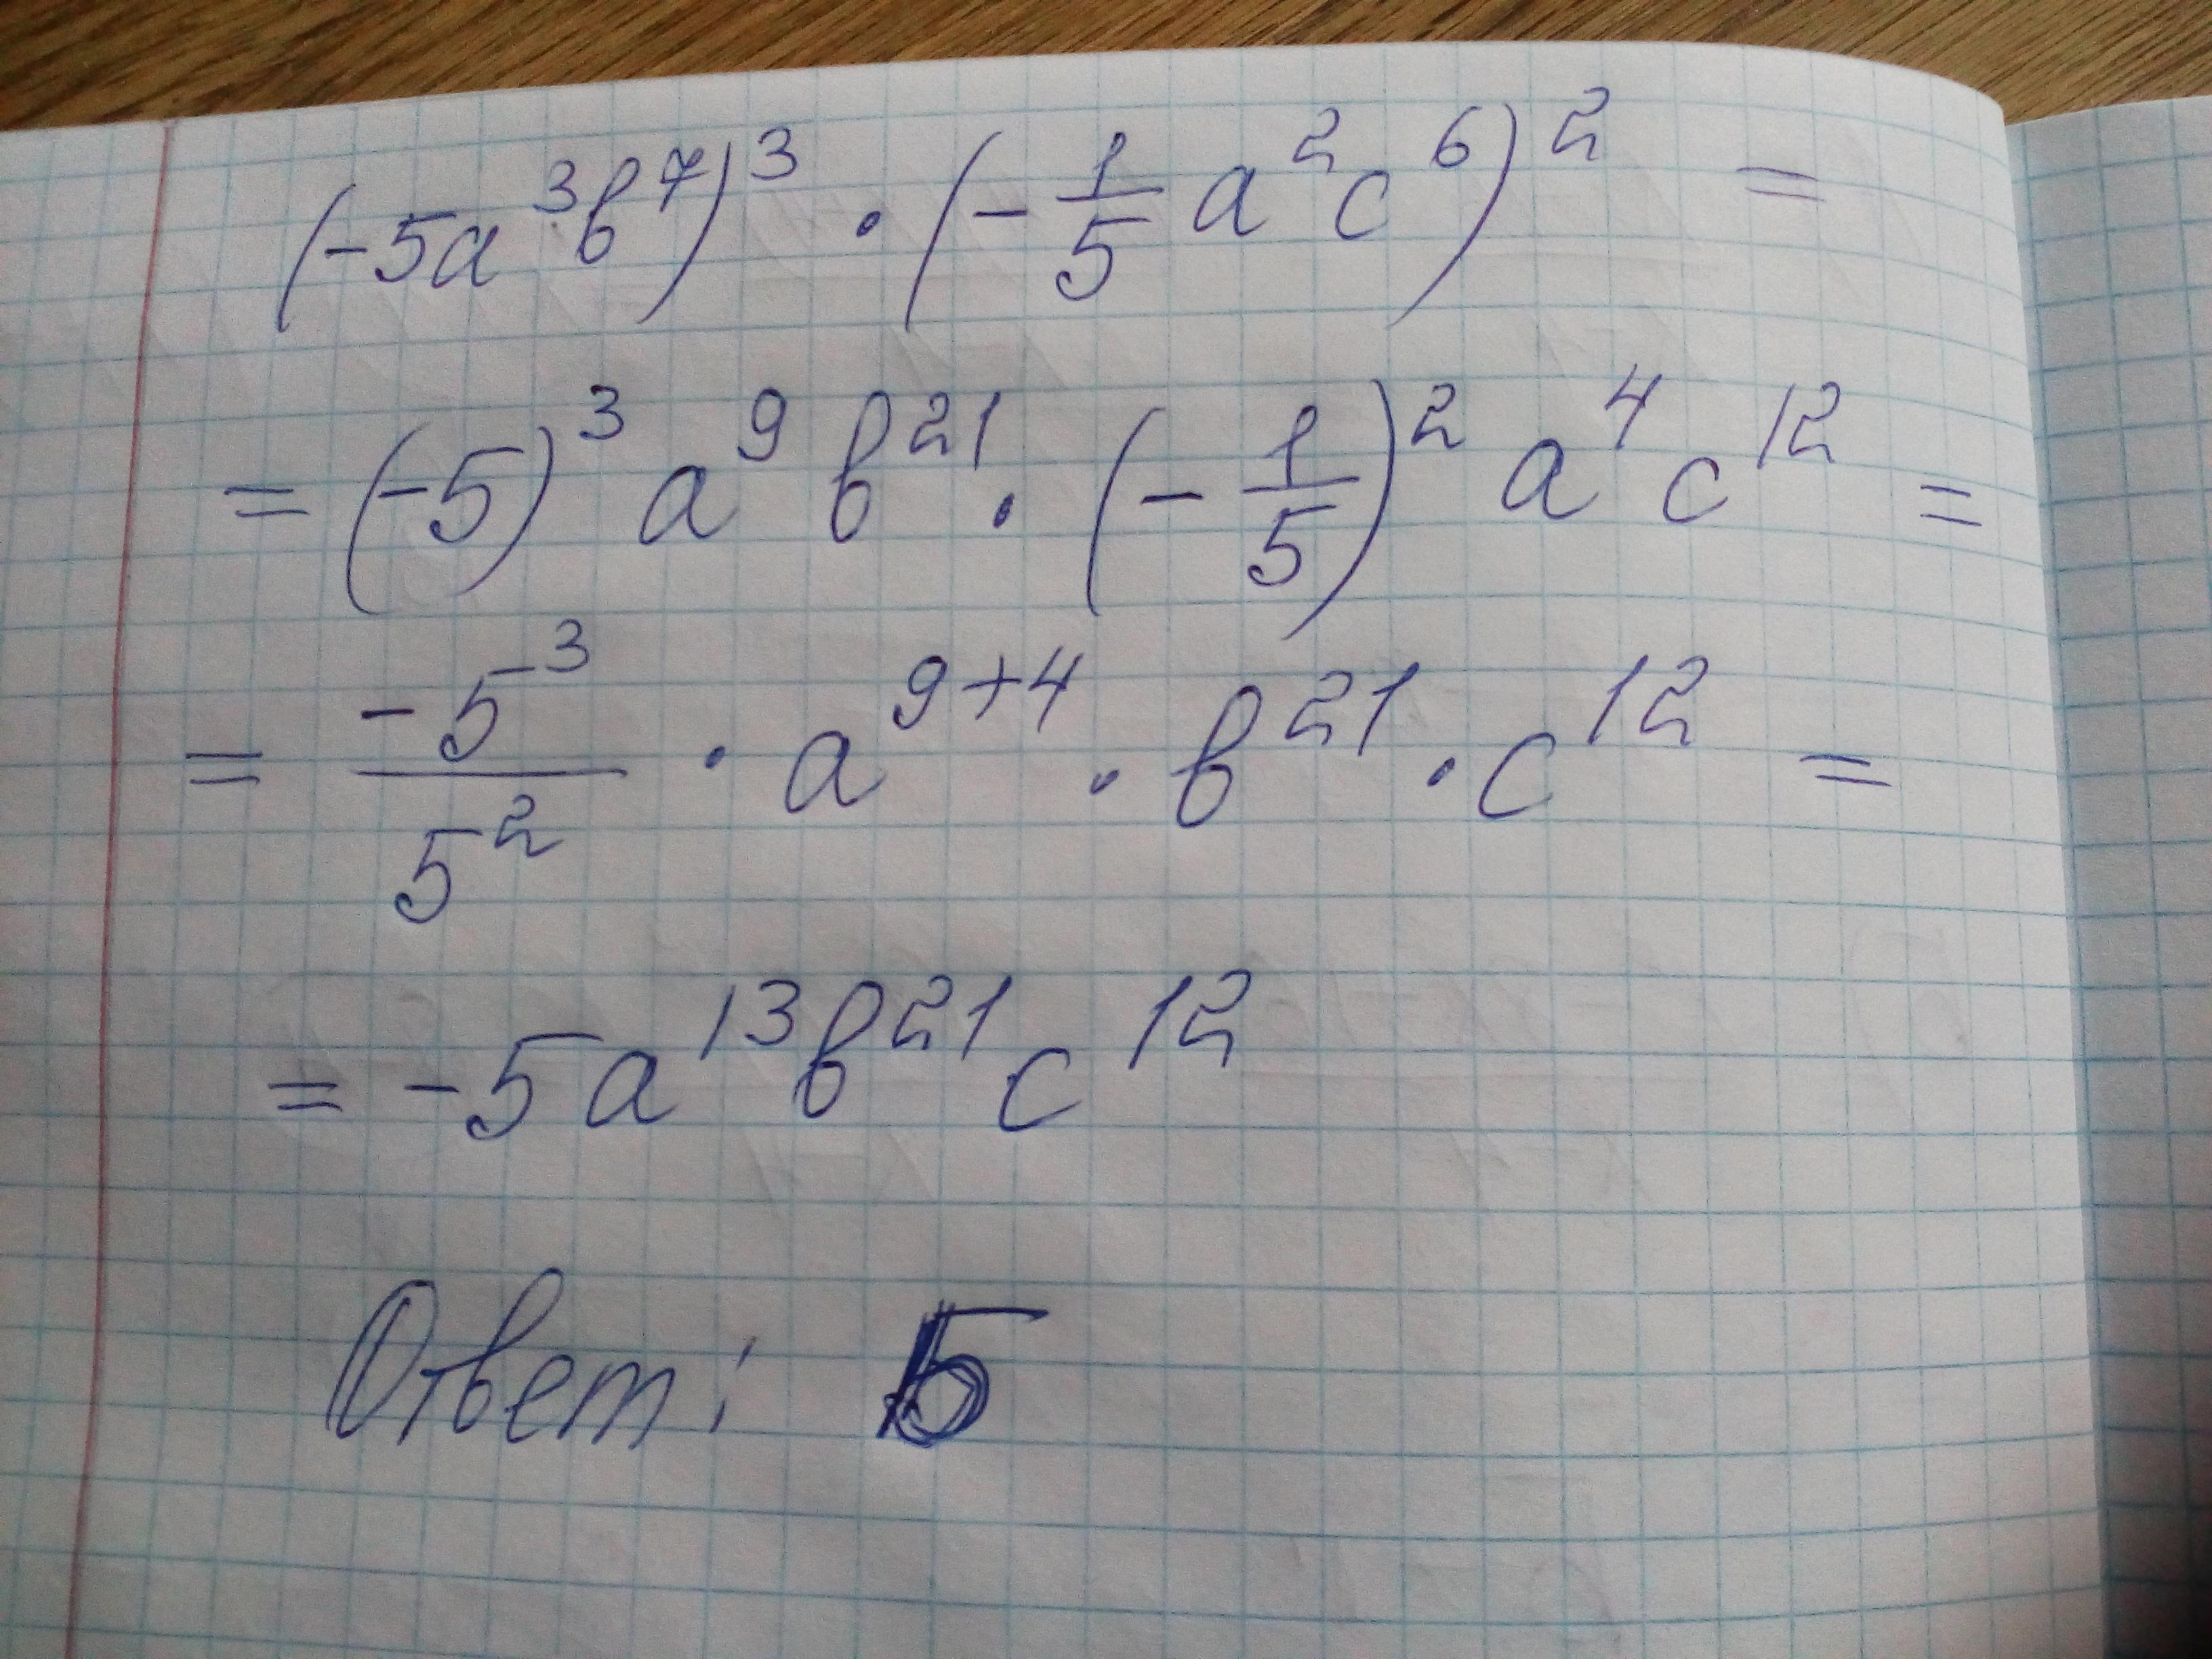 (-5a³b⁷)³ · (-1/5 a²c⁶)² =
= (-5)³ a⁹ b²¹ · (-1/5)² a⁴ c¹² =
= -5³/5² · a⁹⁺⁴ · b²¹ · c¹² =
= -5a¹³b²¹c¹²
Ответ: Б